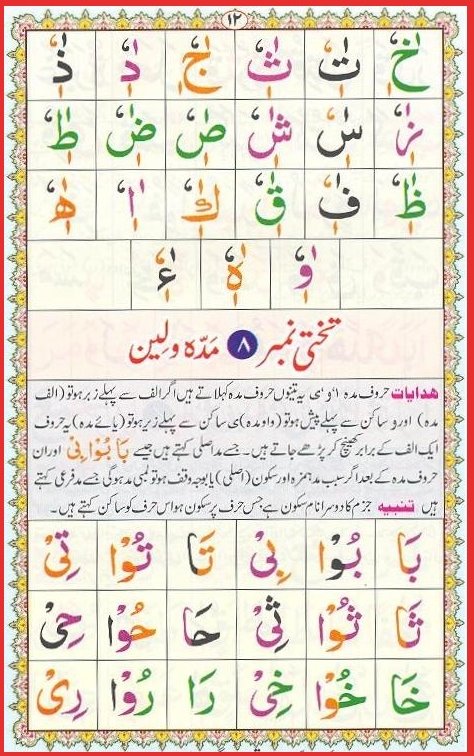 ۱۲
خٰٖٗ تٰٖٗ ثٰٖٗ جٰٖٗ دٰٖٗ ذٰٖٗ
زٰٖٗ سٰٖٗ شٰٖٗ صٰٖٗ ضٰٖٗ طٰٖٗ
ظٰٖٗ فٰٖٗ قٰٖٗ كٰٖٗ اٰٖٗ ھٰٖٗ
وٰٖٗ ہٰٖٗ ءٰٖٗ
تختی نمبر ۸ مَدّہ و لِین
ھدایات حروف مدہ ا ، و ، ی یہ تینوں حروف مدہ کہلاتے ہیں اگر الف سے پہلے زبر ہو تو (الف
مدہ) اور و ساکن سے پہلے پیش ہو تو (واو مدہ) ی ساکن سے پہلے زیر ہو تو (یائے مدہ) یہ حروف
ایک الف کے برابر کھینچ کر پڑھے جاتے ہیں۔ جسے مد اصلی کہتے ہیں جیسے بَا بُوْا بِیْ اور ان
حروف مدہ کے بعد اگر سبب مد ہمزہ اور سکون (اصلی) یا بوجہ وقف ہو تو لمبی مد ہوگی جسے مد فرعی کہتے
ہیں تنبیہ جزم کا دوسرا نام سکون ہے جس حرف پر سکون ہو اس حرف کو ساکن کہتے ہیں۔
بَا بُوْا بِیْ تَا تُوْا تِیْ
ثَا ثُوْا ثِیْ حَا حُوْا حِیْ
خَا خُوْا خِیْ رَا رُوْا رِیْ